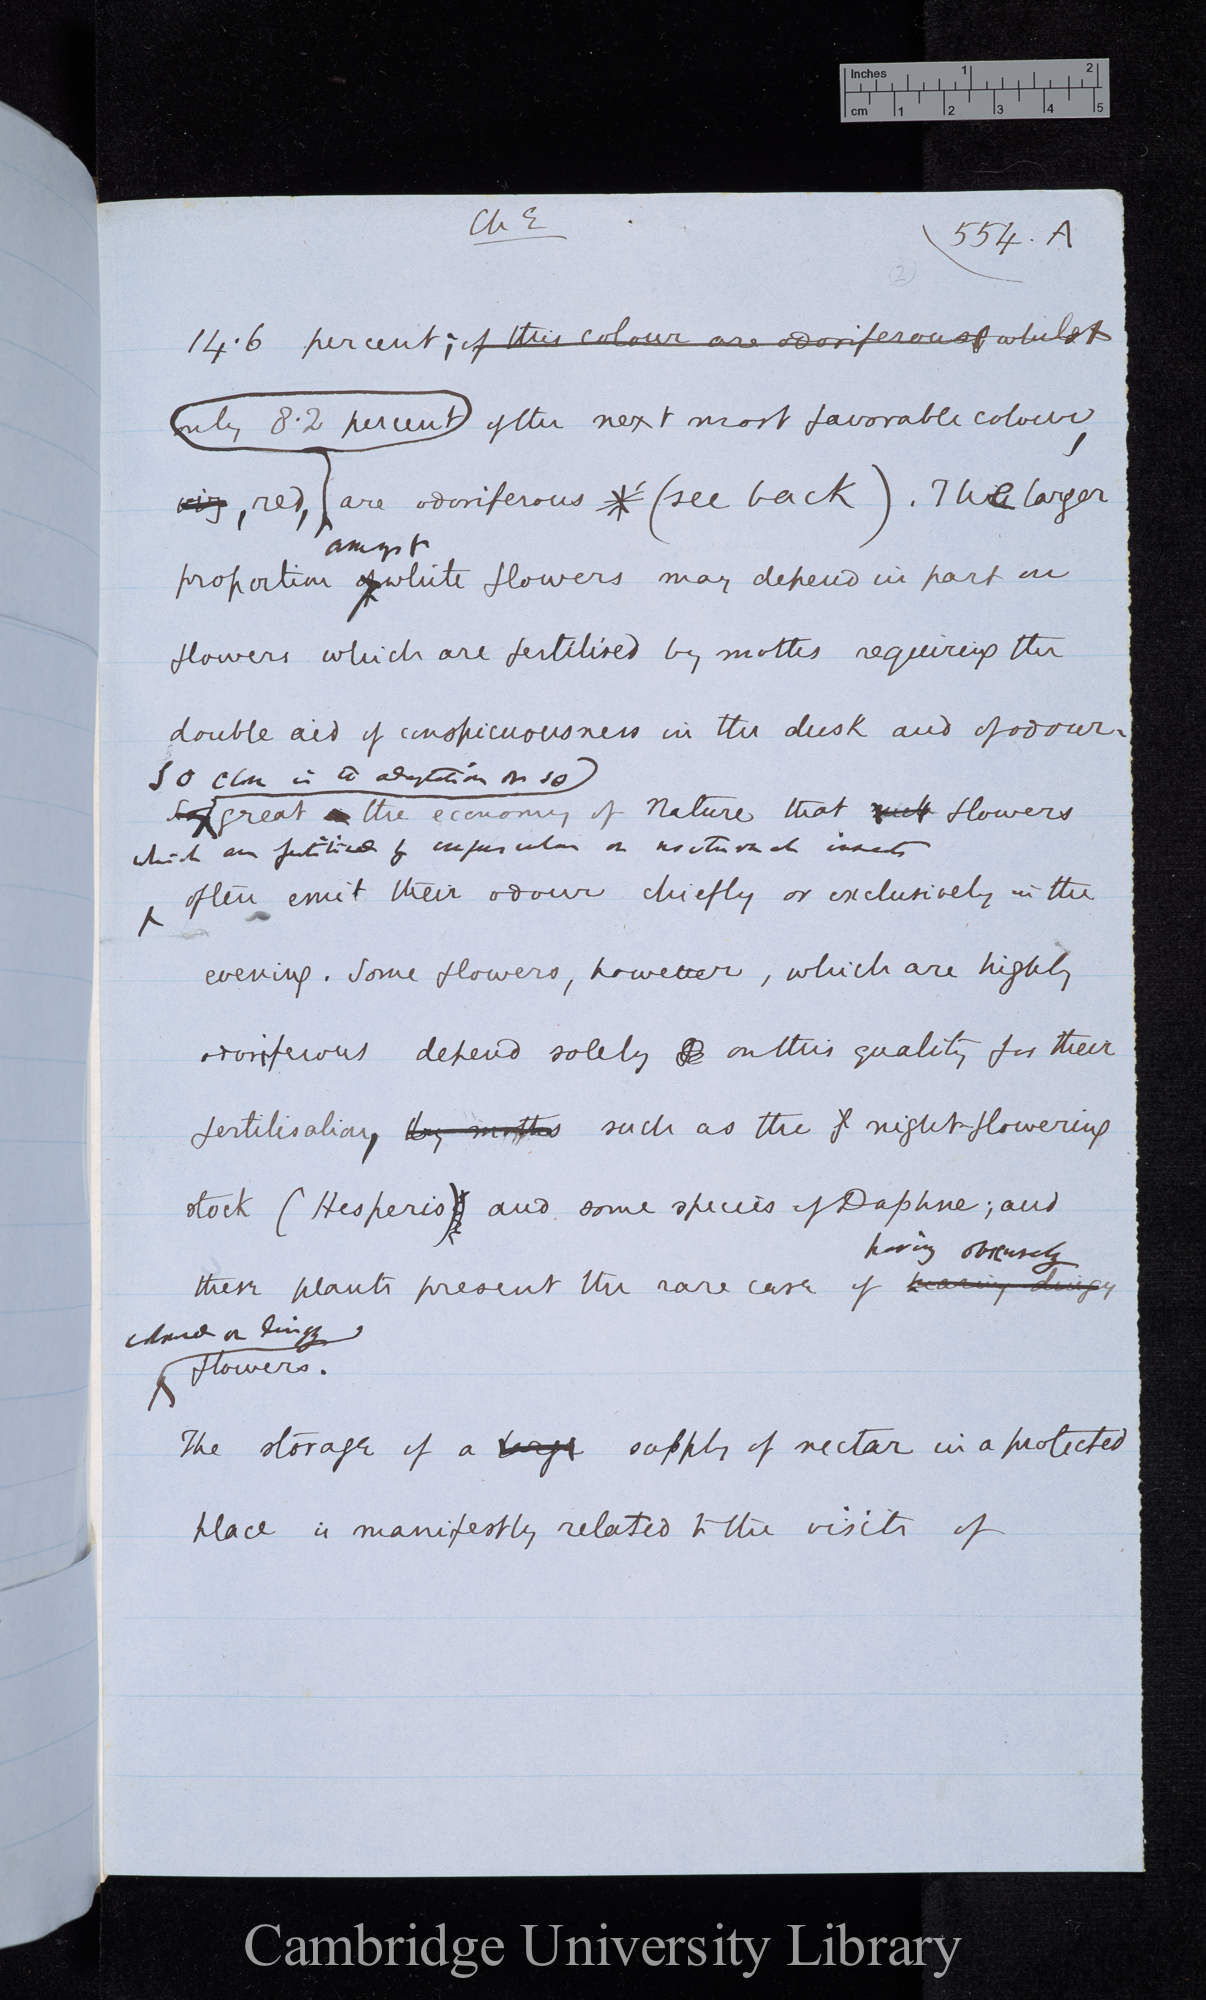 Inches 1 2
cm 1 2 3 4 5
Ch E
554. A
(2)
14.6 percent; of this colour are odoriferous, whilst
only 8.2 percent of the next most favorable colour,
viz, red, are odoriferous * (see back). The larger
amongst
proportion of white flowers may depend in part on
flowers which are fertilised by moths requiring the
double aid of conspicuousness in the dusk and of odour.
So close is the adaptation or so
So great is the economy of Nature that such flowers
which are fertilised by crepuscular or nocturnal insects
often emit their odour chiefly or exclusively in the
evening. Some flowers, however, which are highly
odoriferous depend solely on this quality for their
fertilisation, by moths such as the night-flowering
stock (Hesperis) and some species of Daphne; and
having obscurely
these plants present the rare case of bearing dingy
coloured or dingy
flowers.
The storage of a large supply of nectar in a protected
place is manifestly related to the visits of
Cambridge University Library